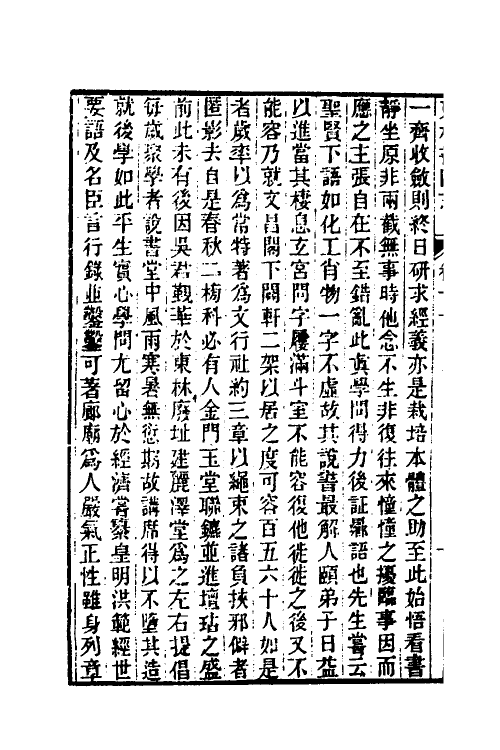 一齊收斂則終日研求經義亦是栽培本體之助至此始悟看書
靜坐原非兩截無事時他念不生非復往來憧憧之擾臨事因而
應之主張自在不至錯亂此眞學問得力後証驗語也先生嘗云
聖賢下語如化工肖物一字不虛故其說書最解人頤弟子日益
以進當其棲息玄宮問字屨滿斗室不能容復他徙徙之後又不
能容乃就文昌閣下闢軒二架以居之度可容百五六十人如是
者歲率以爲常特著爲文行社約三章以繩束之諸負挾邪僻者
匿影去自是春秋二榜科必有人金門玉堂聯鑣並進壇坫之盛
前此未有後因吳君覲華於東林廢址建麗澤堂爲之左右提倡
每歲聚學者說書堂中風雨寒暑無愆期故講席得以不墮其造
就後學如此平生實心學問尤留心於經濟嘗纂皇明洪範經世
要語及名臣言行錄並鑿鑿可著廊廟爲人嚴氣正性雖身列章